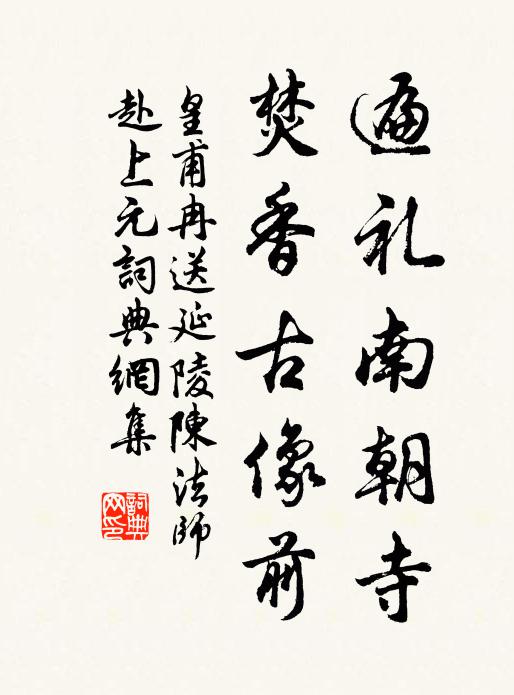 遍礼南朝寺
焚香古像前
皇甫冉送延陵陳法師
赴上元詞典網集
詞典
网印